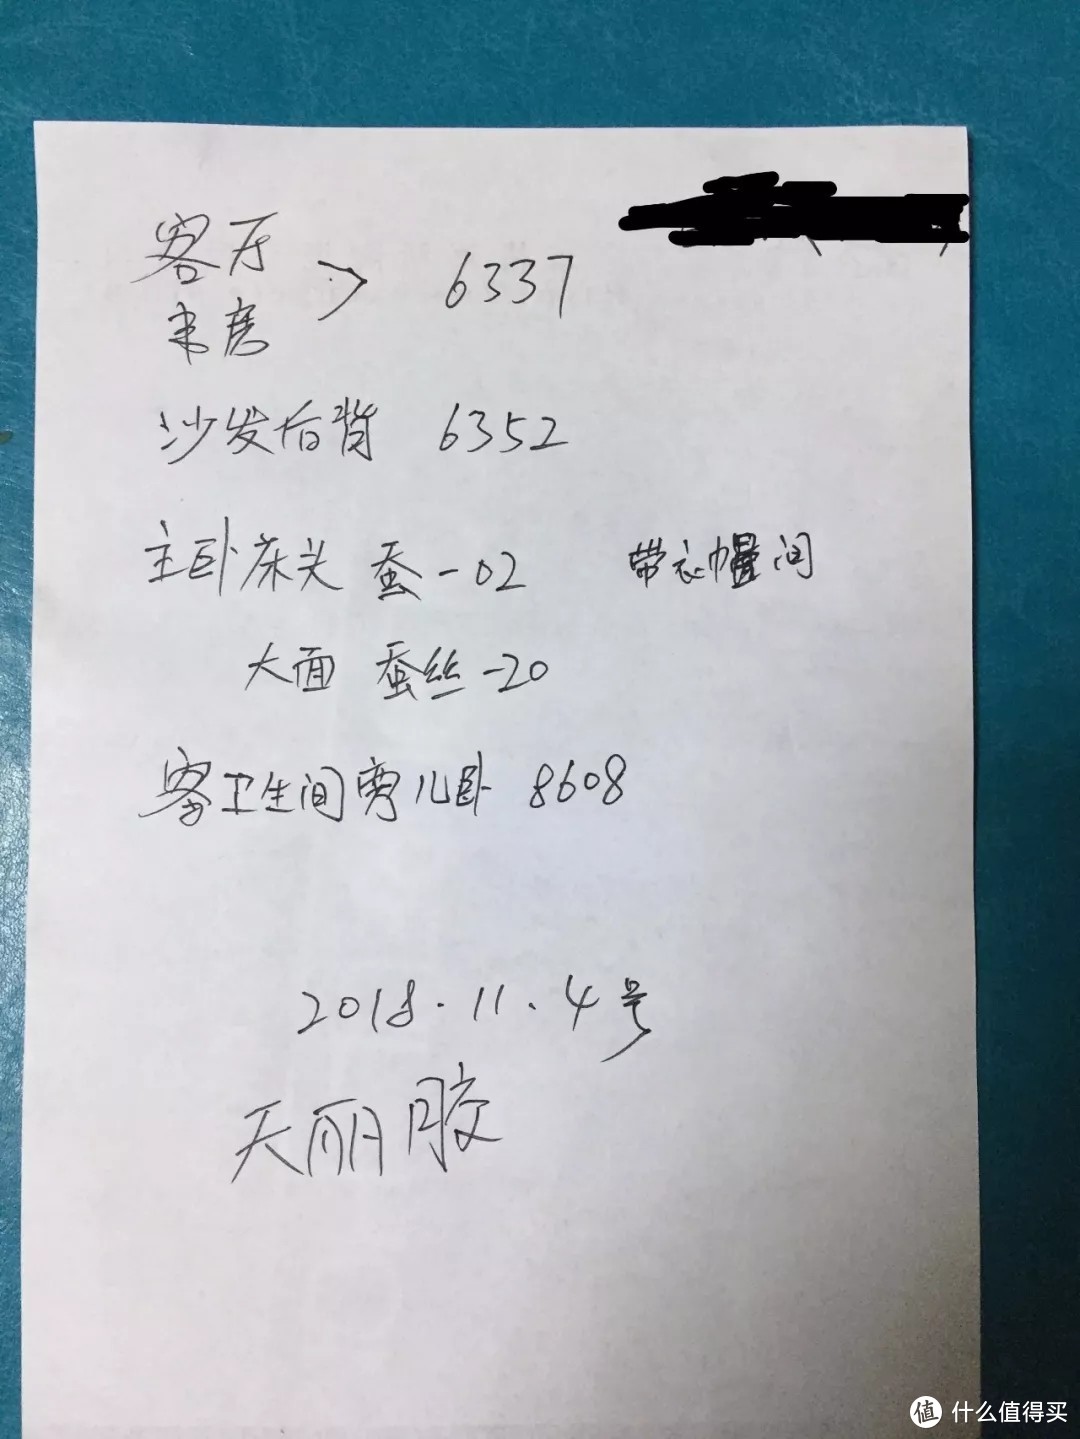 客厅 > 6337
来房
沙发后背 6352
主卧床头 蚕-02 带衣帽间
大面 蚕丝-20
客卫生间旁儿卧 8608
2018.11.4号
天丽胶
值 什么值得买